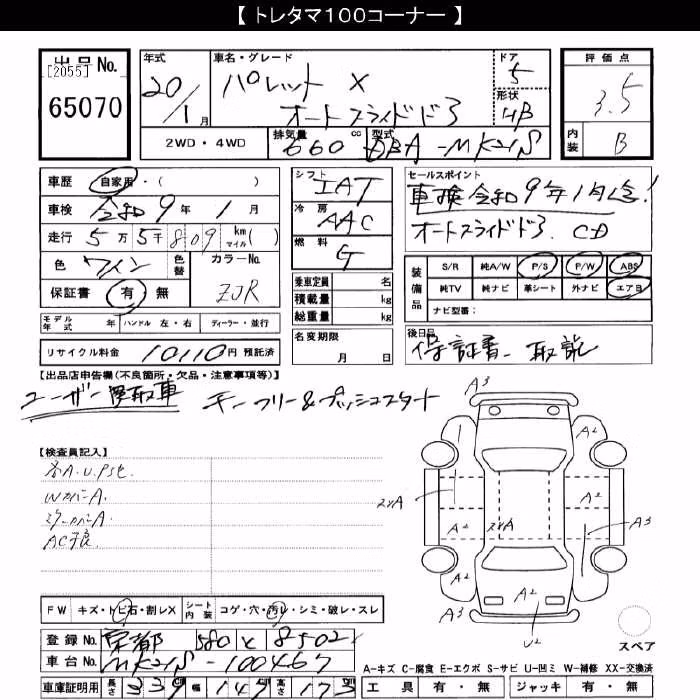 【 トレタマ100コーナー 】
出品No.
[2055]
65070
年式
20/1月
車名・グレード
パレット X
オートスライドドア
ドア
5
形状
HB
評価点
3.5
内装
B
2WD・4WD
排気量
660 cc
型式
DBA-MK21S
車歴 自家用・( )
車検 令和9年1月
走行 5万5千809 km マイル( )
色 ワイン 色替 カラーNo. ZJR
保証書 有 無
モデル年式 年 ハンドル 左・右 ディーラー・並行
リサイクル料金 10110円 預託済
シフト
IAT
冷房
AAC
燃料
G
乗車定員 名
積載量 kg
総重量 kg
名変期限
月 日
セールスポイント
車検令和9年1月迄!
オートスライドドア. CD
装備品
S/R 純A/W P/S P/W ABS
純TV 純ナビ 革シート 外ナビ エアB
ナビ型番:
後日品
保証書、取説
【出品店申告欄(不良箇所・欠品・注意事項等)】
ユーザー買取車 キーフリー&プッシュスタート
【検査員記入】
各A.U.Ps他
WカバーA.
ミラーカバーA.
AC不良
FW キズ・トビ石・割レX シート内装 コゲ・穴・汚レ・シミ・破レ・スレ
登録No. 京都 580 と 8502
車台No. MK21S-100467
車庫証明用 長さ 339 幅 147 高さ 173
A3
A2
A2
A2
A2
A3
A2
A3
U2
スペア
A-キズ C-腐食 E-エクボ S-サビ U-凹ミ W-補修 XX-交換済
工具 有・無 ジャッキ 有・無